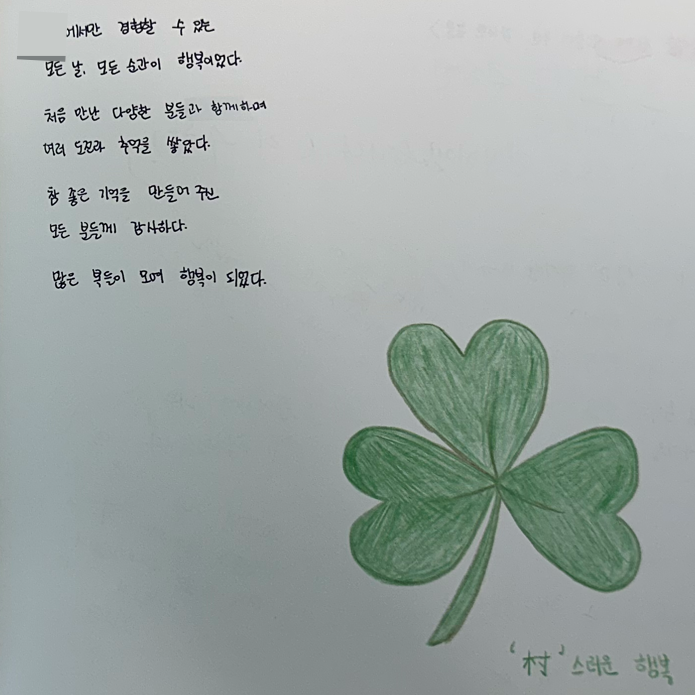 에서만 경험할 수 있는
모든 날, 모든 순간이 행복이었다.
처음 만난 다양한 분들과 함께하며
여러 도전과 추억을 쌓았다.
참 좋은 기억을 만들어 주신
모든 분들께 감사하다.
많은 복들이 모여 행복이 되었다.
'村'스러운 행복